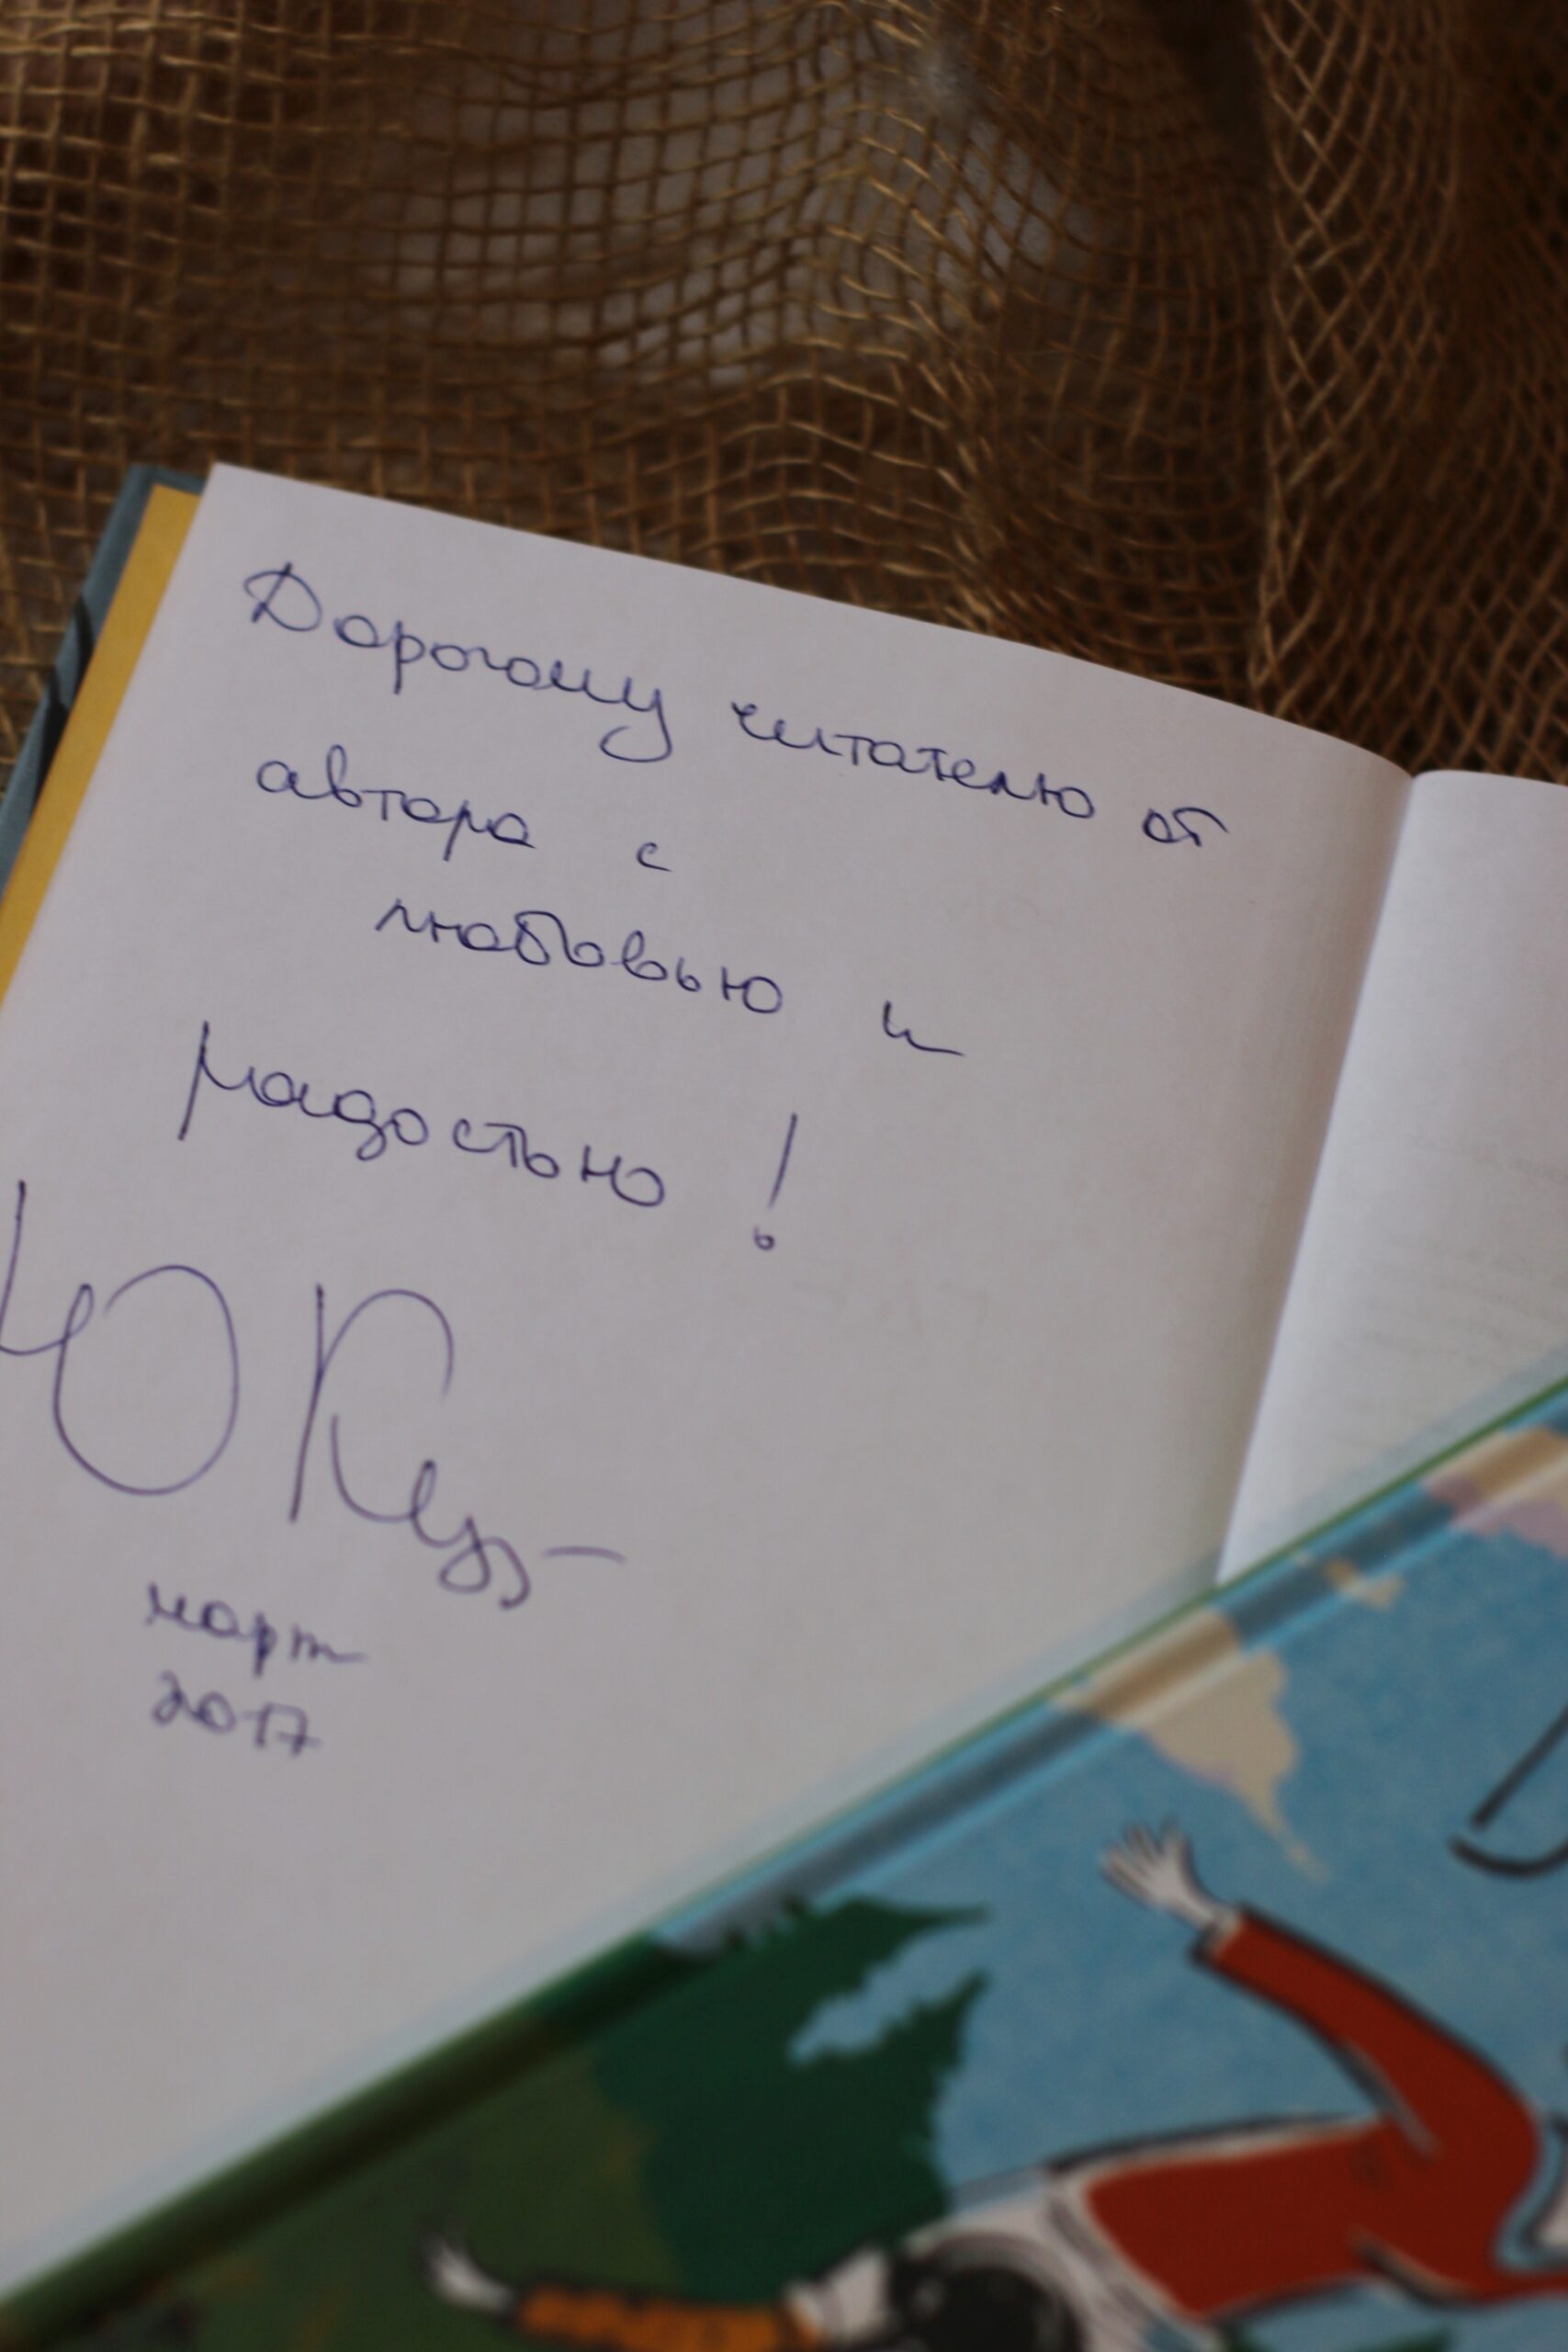 Дорогому читателю от
автора с
любовью и
радостью!
март
2017